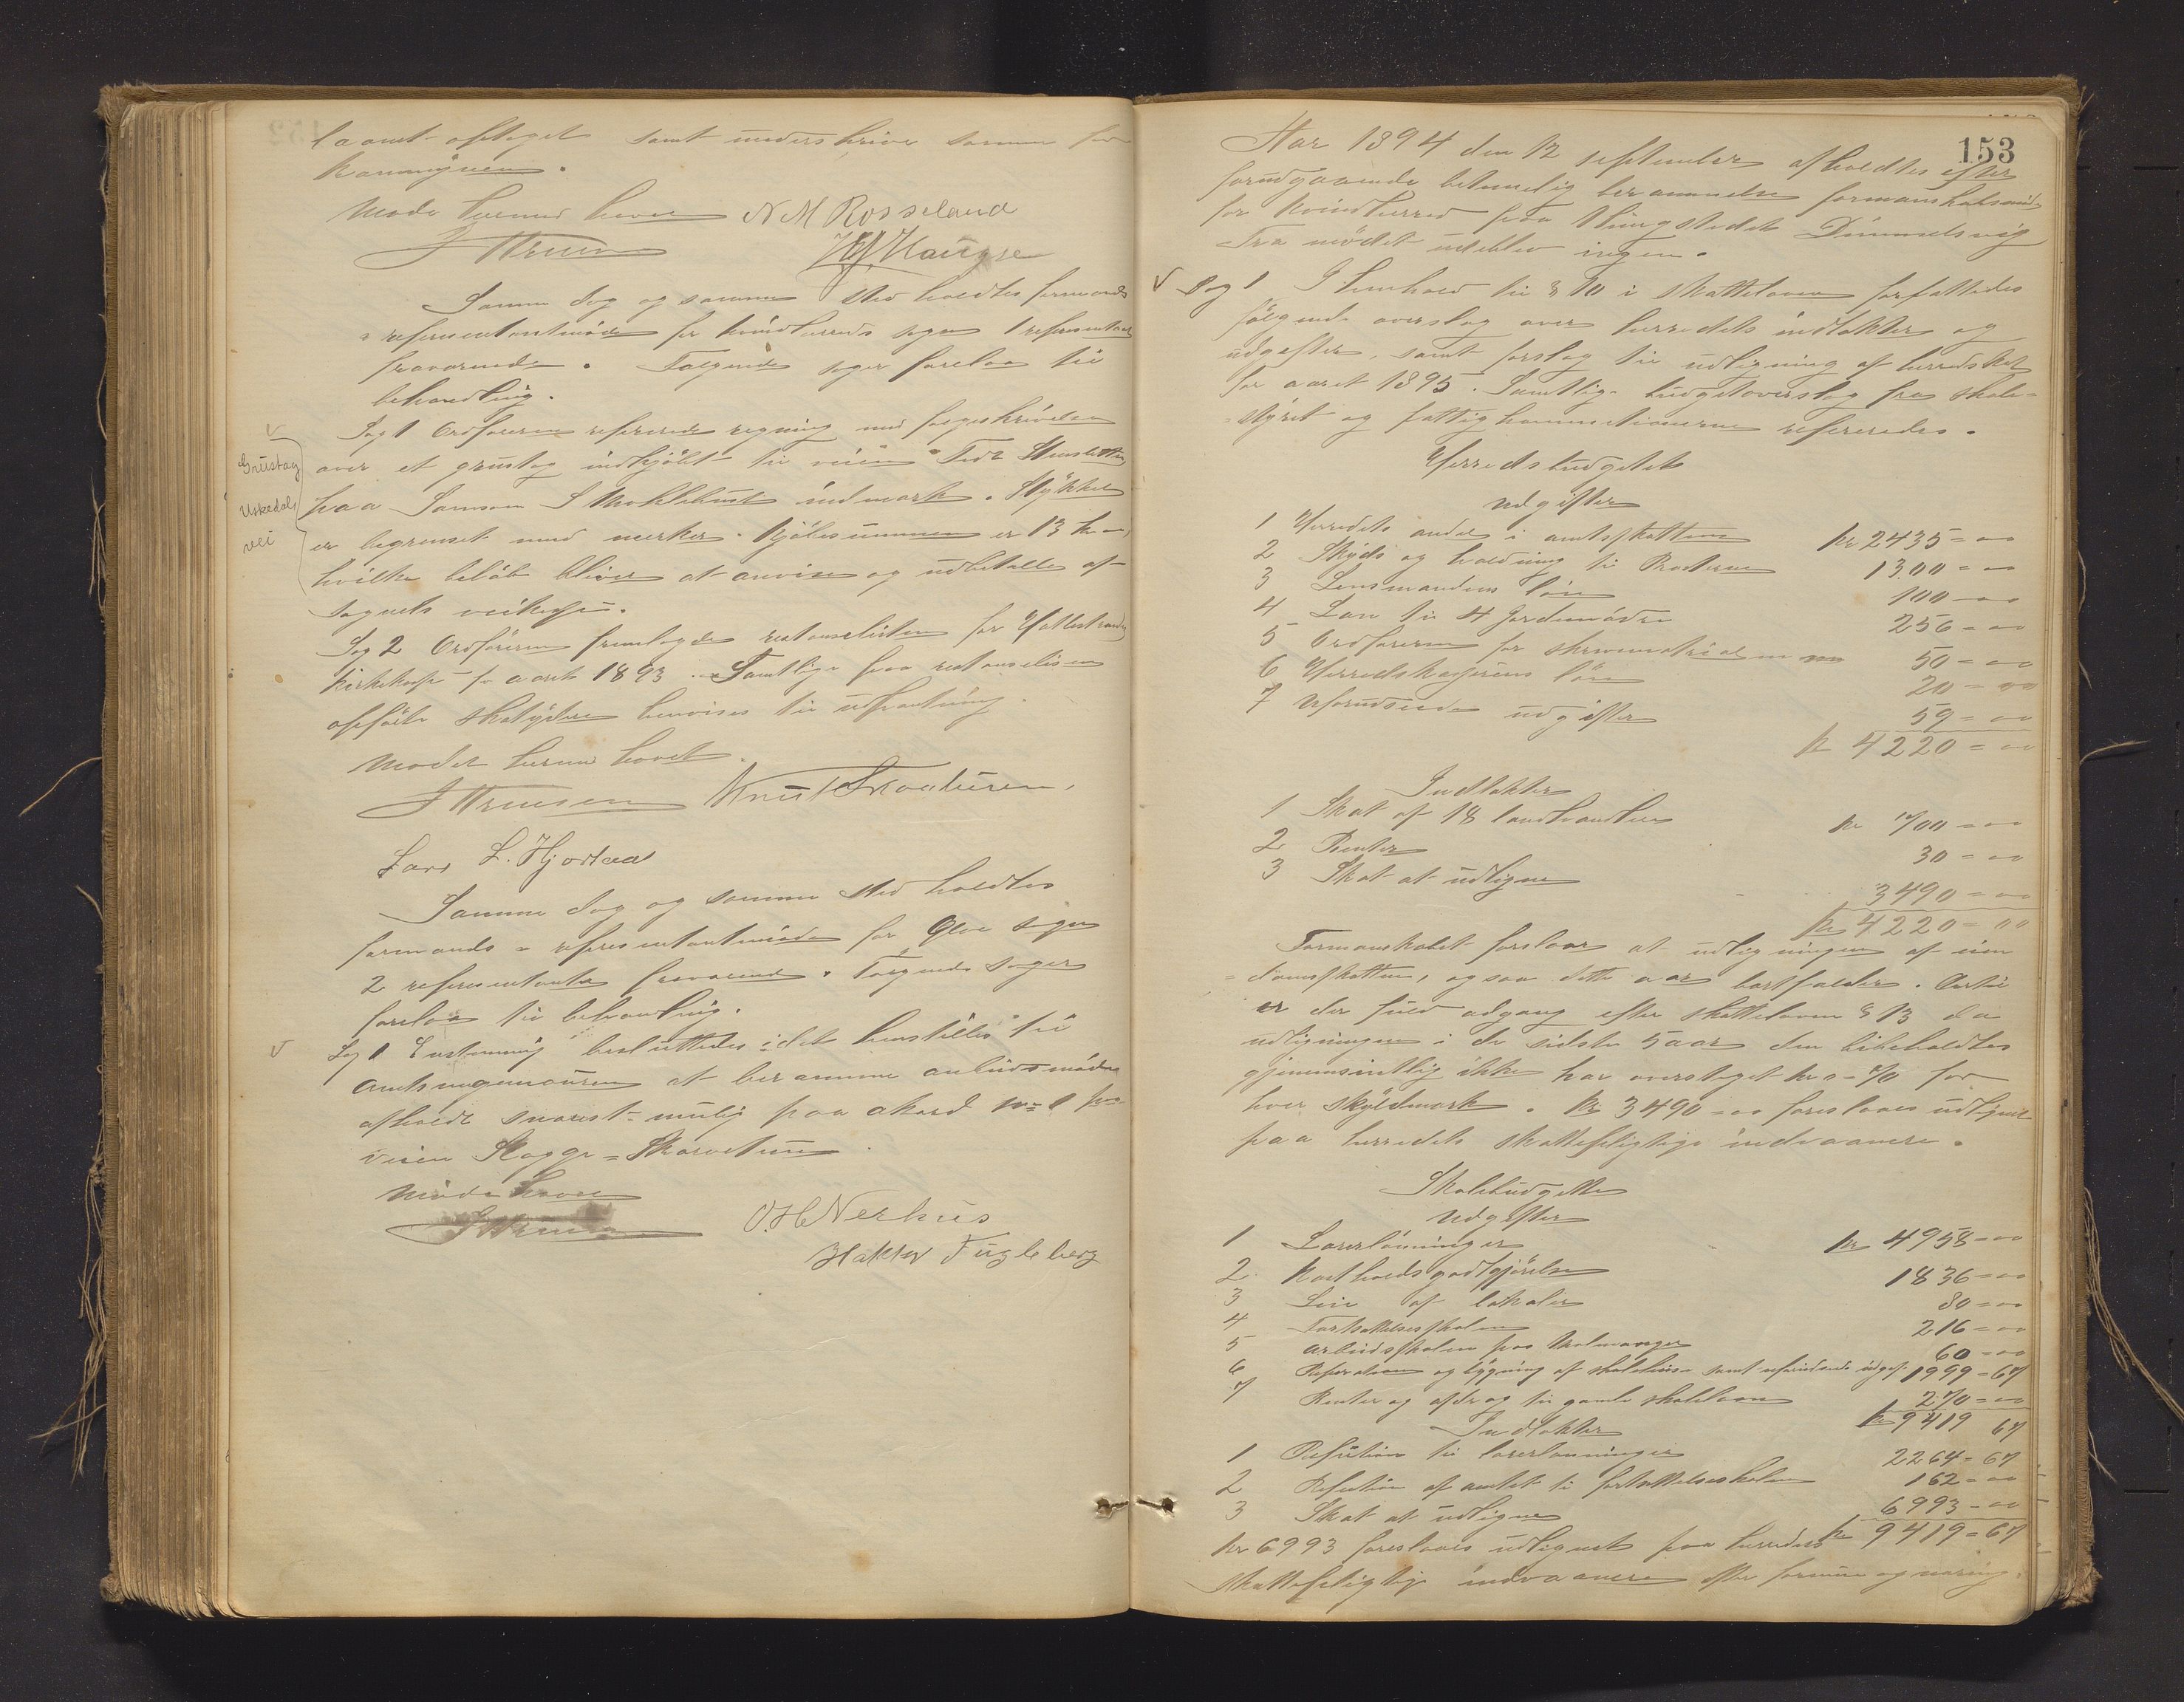 laanet optaget samt underskrive samme for
Kommunen.
Møde hermed hævet N M Rosseland
Samme dag og samme sted holdtes formands
= representantmøde for Kvindherreds sogn 1 representant
fraværende. Følgende sager forelaa til
behandling.
Sag 1 Ordføreren refererede regning med følgeskrivelse
over et grustag indkjøbt til veien
Grustag
Uskedals
vei
paa Samson S Myklebust indmark. Stykket
er begrenset med merker. Kjøbesummen er 13 kr =,
hvilke beløb bliver at anvise og udbetalle af
sognets veikasse.
Sag 2 Ordføreren fremlagde restanselisten for
kirkekasse for aaret 1893. Samtlige paa restanselisen
opførte skatydere henvises til udpantning.
Mødet hermed hævet.
Lars L. Hjortaas
Samme dag og samme sted holdtes
formands = representantmøde for Ølve sogn
2 representanter fraværende. Følgende sager
forelaa til behandling.
Sag 1 Enstemmig besluttedes idet henstilles til
Amtsingeniøren at beramme anbudsmøde
afholdt snarest = mulig paa akord No 1 paa
veien
Møde hævet
O. H. Nerhus
Fugleberg
153
Aar 1894 den 12 september afholdtes efter
forudgaaende betimelig berammelse formanskabsmøde
for Kvindherred paa thingstedet Dimmelsvig
Fra mødet udeblev ingen.
Sag 1 I henhold til § 70 i skatteloven forfattedes
følgende overslag over herredets indtækter og
udgifter, samt forslag til udligning af herredskat
for aaret 1895. Samtlige budgetoverslag fra skole-
= styret og fattigkommisionerne refereredes.
Herredsbudgetet
Udgifter
1 Herredets andel i amtsskatten kr 2435 = 00
2 Skyds og holdning til Presterne 1300 = 00
3 Lensmandens løn 100 - 00
4 Løn til 4 Jordemødre 256 = 00
5 Ordføreren for skrivematrialer 50 = 00
6 Herredskasserens løn 20 = 00
7 Uforudseede udgifter 59 = 00
kr 4220 = 00
Indtækter
1 Skat af 18 landhandlere kr 700 = 00
2 Renter 30 = 00
3 Skat at udligne 3490 = 00
kr 4220 = 00
Formanskabet foreslaar at udligningen af eien
= domsskatten, ogsaa dette aar bortfalder. Dertil
er der fuld adgang efter skatteloven § 13 da
udligningen i de sidste 5 aar den bibeholdtes
gjennemsnitlig ikke har oversteget kr 0 = 70 for
hver skyldmark. Kr 3490 = 00 foreslaaes udlignet
paa herredets skattepligtige indvaanere.
Skolebudgettet
Udgifter
1 Lærerlønninger kr 4958 = 00
2 Kostholdsgodtgjørelse 1836 = 00
3 Leie af lokaler 80 = 00
4 Fortsættelsesskolen 216 = 00
5 Arbeidsskolen paa Malmanger 60 = 00
6 Reperation og bygning af skolehus = samt uforudseede udgif. 1999 = 67
7 Renter og afdrag til gamle skolelaan 270 = 00
kr 9419 67
Indtækter
1 Refution til lærerlønninger 2264 = 67
2 Refution af amtet til fortsættelsesskolen 162 = 00
3 Skat at udligne 6993 = 00
kr 9419 = 67
kr 6993 foreslaaes udlignet paa herredets
skattepligtige indvaanere efter formue og næring.